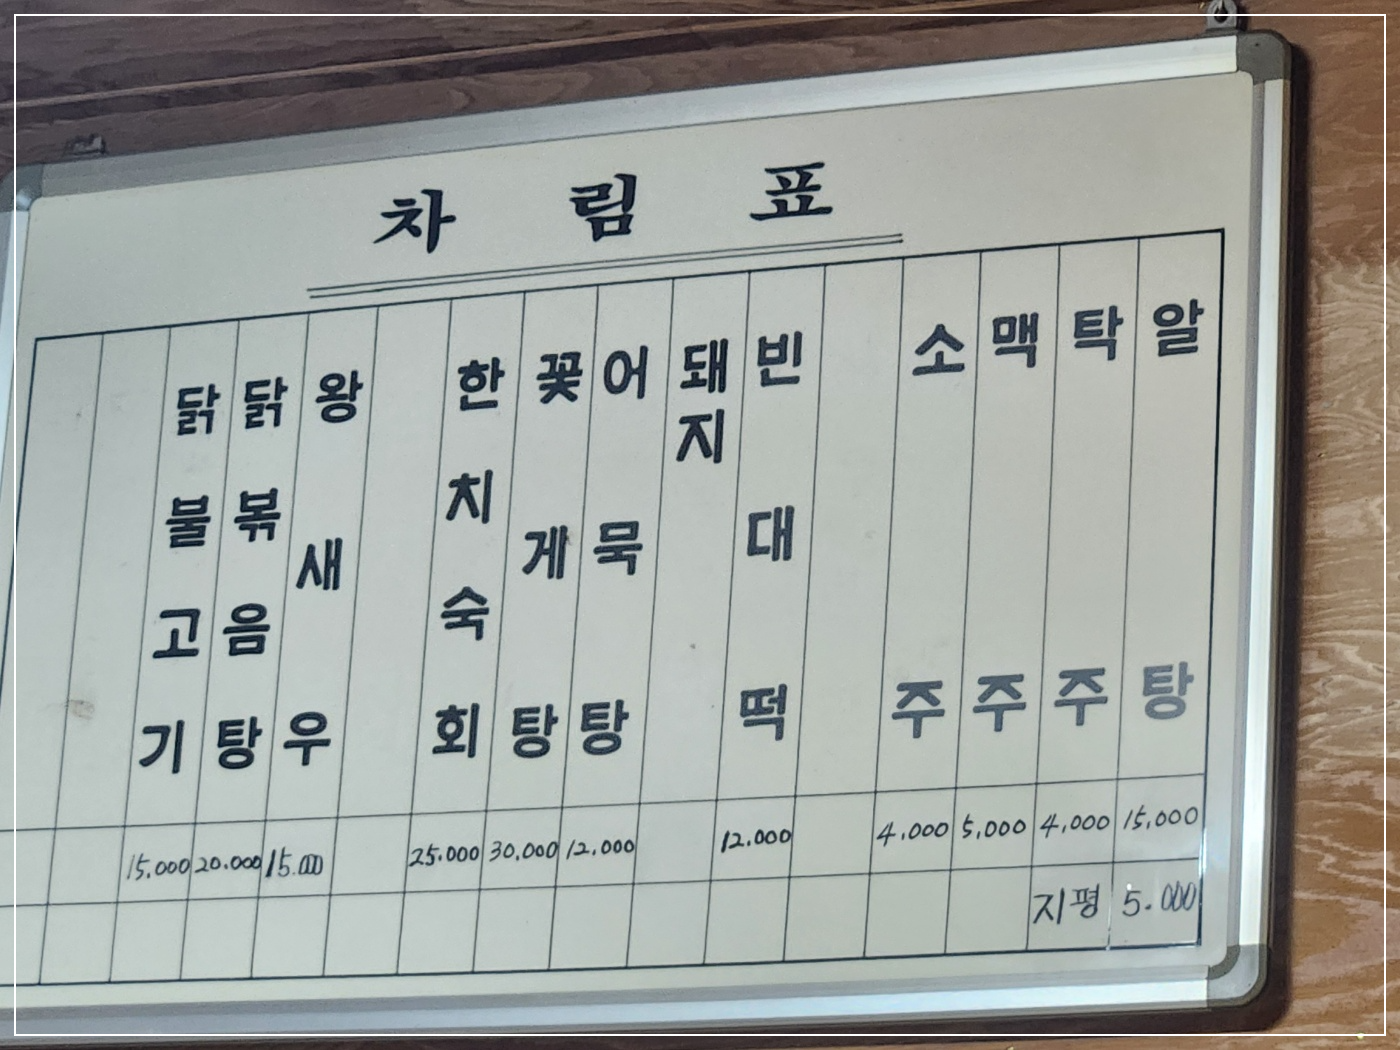 차림표
닭불고기 15.000
닭볶음탕 20.000
왕새우 15.000
한치숙회 25.000
꽃게탕 30.000
어묵탕 12.000
돼지
빈대떡 12.000
소주 4.000
맥주 5.000
탁주 4.000
알탕 15.000
지평 5.000